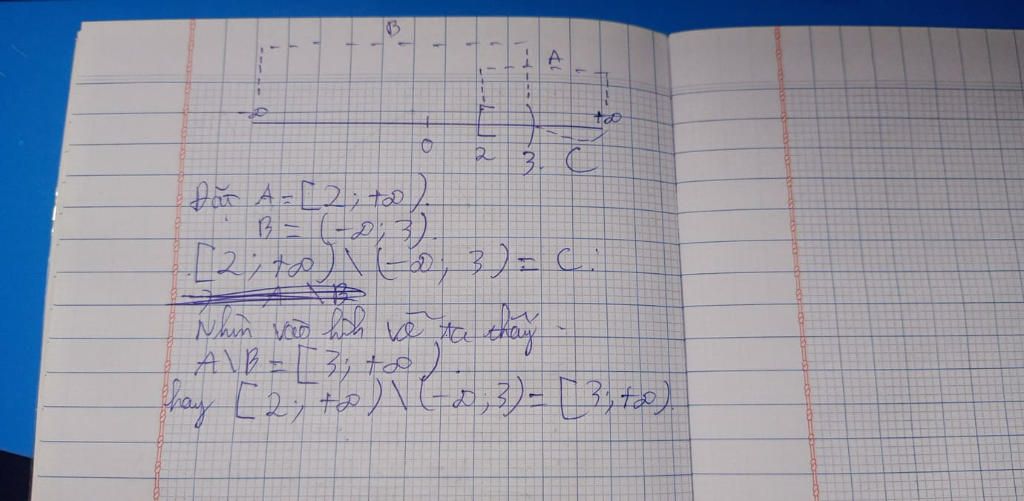 B
A
-∞ +∞
0 2 3. C
Đặt A = [2; +∞).
B = (-∞; 3).
[2; +∞) \ (-∞; 3) = C.
A \ B
Nhìn vào hình vẽ ta thấy
A\B = [3; +∞).
hay [2; +∞) \ (-∞; 3) = [3; +∞).